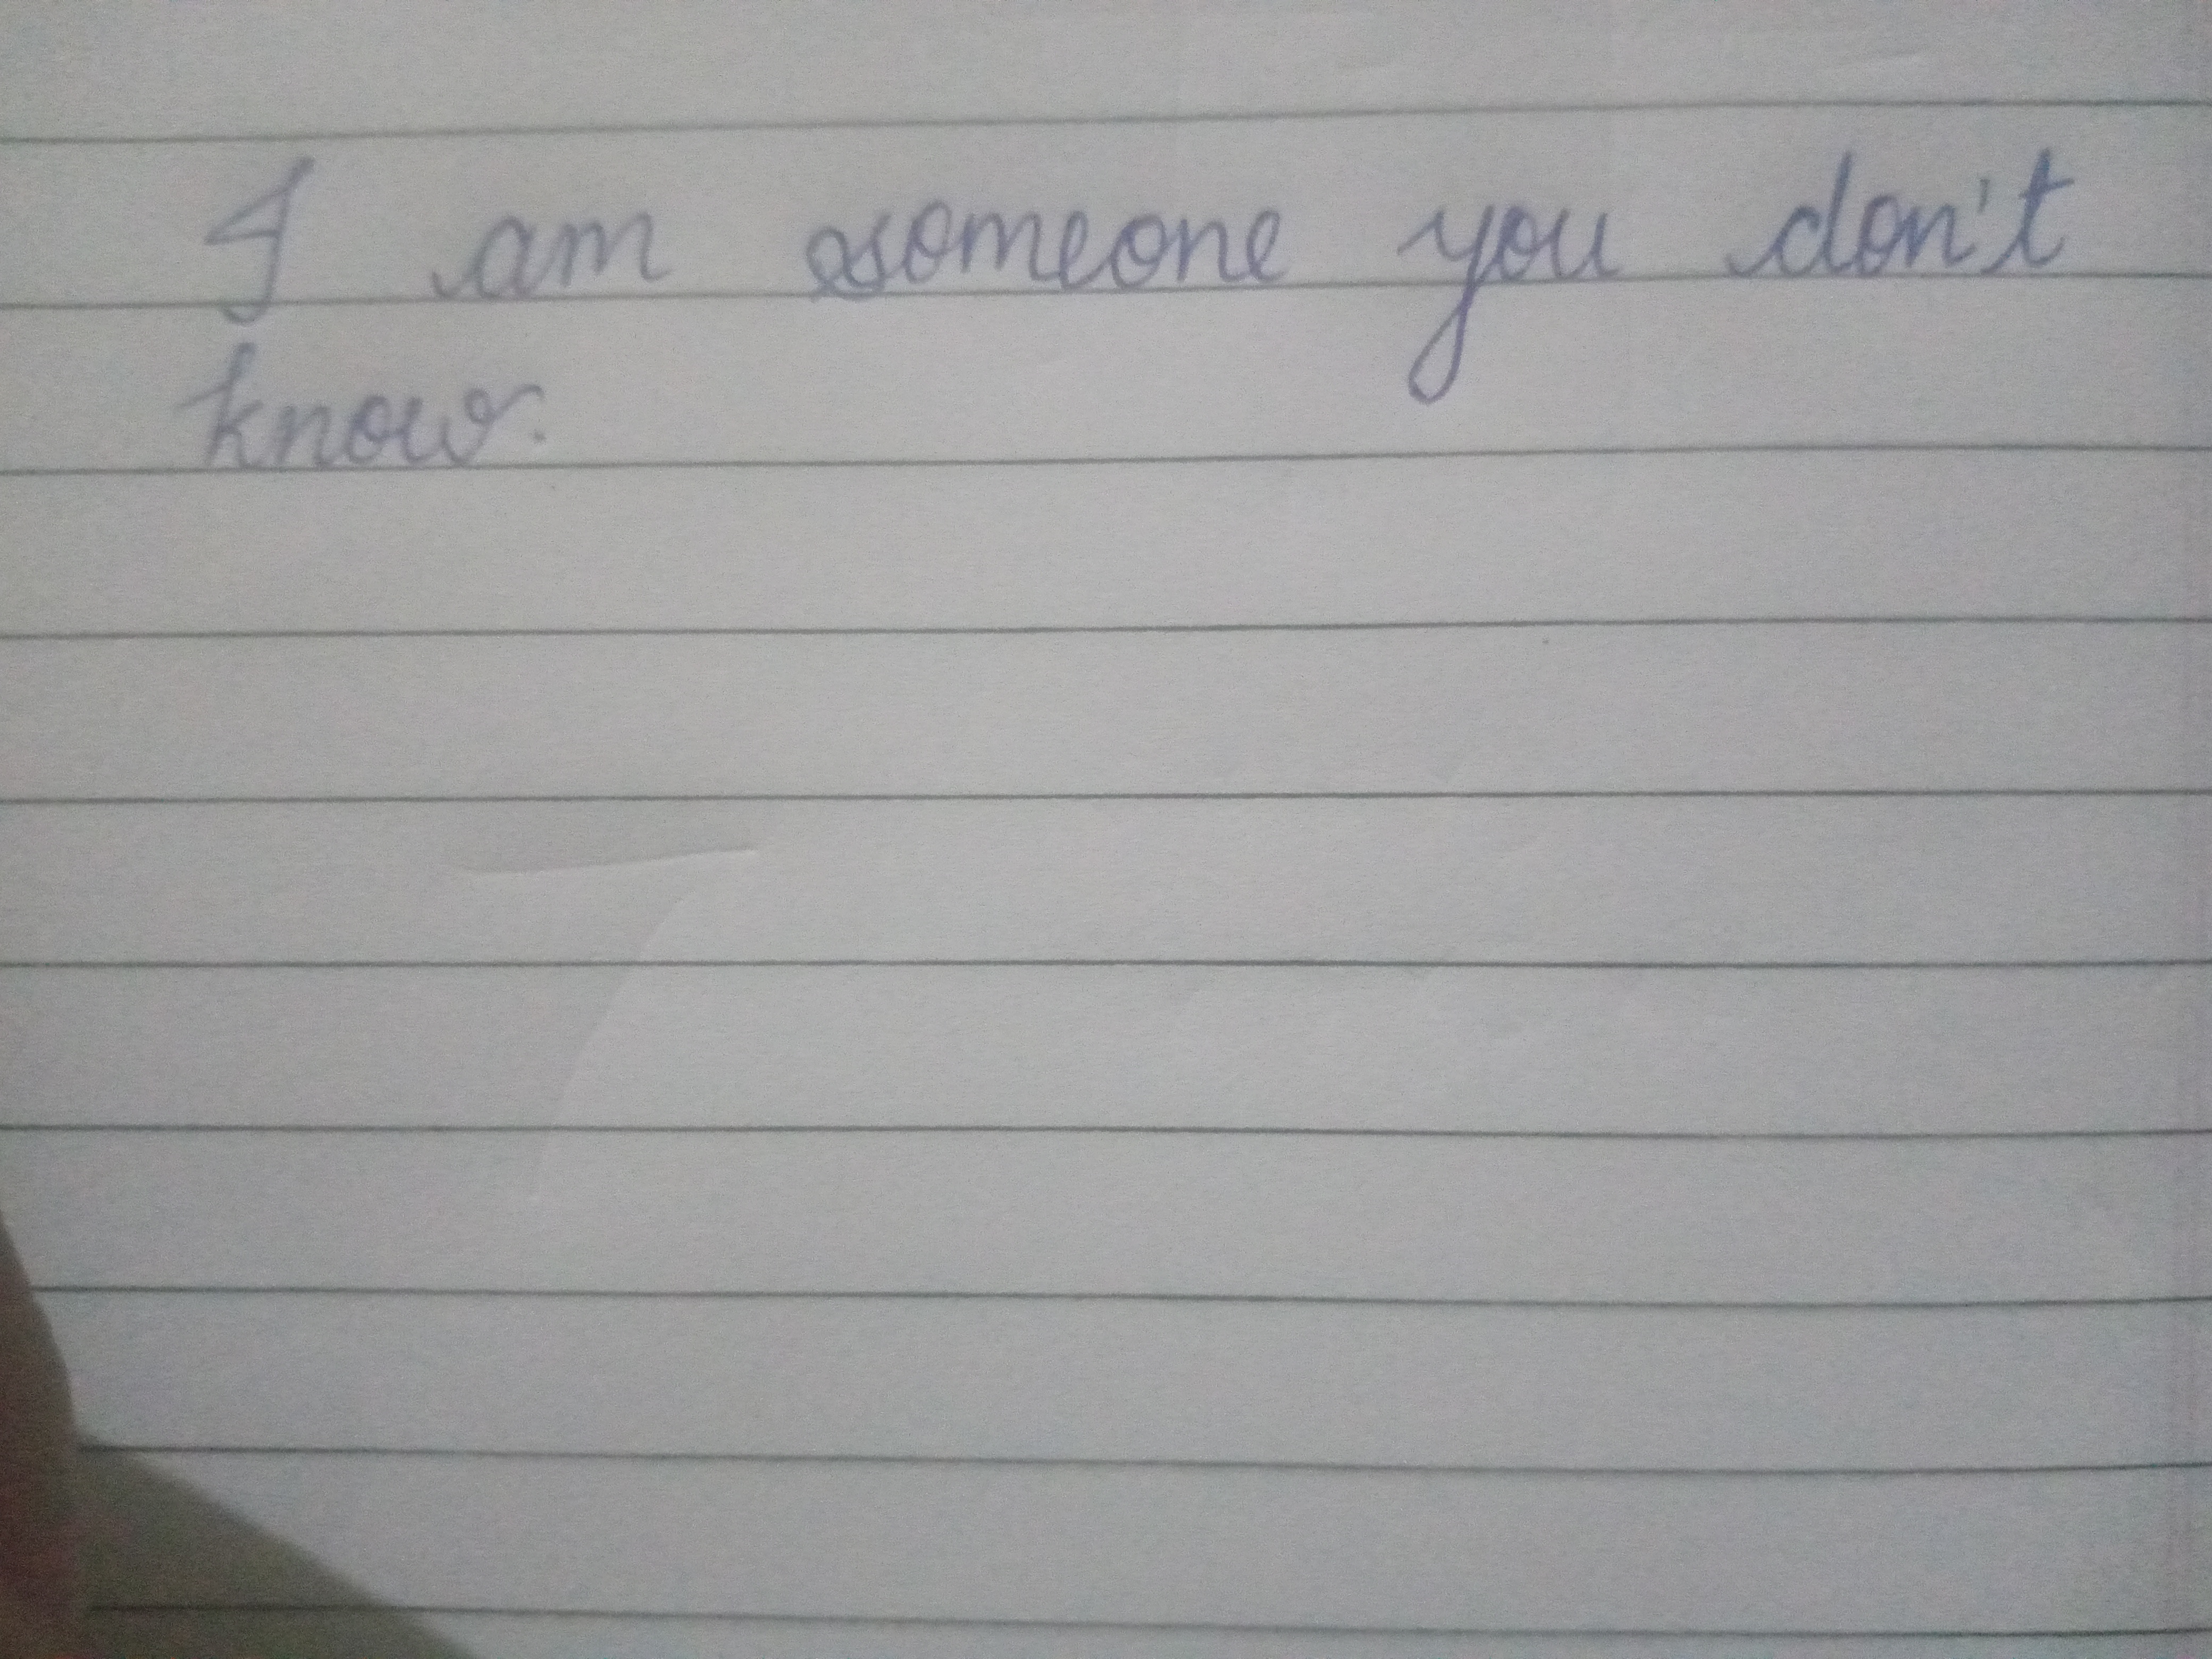 I am someone you don't
know.